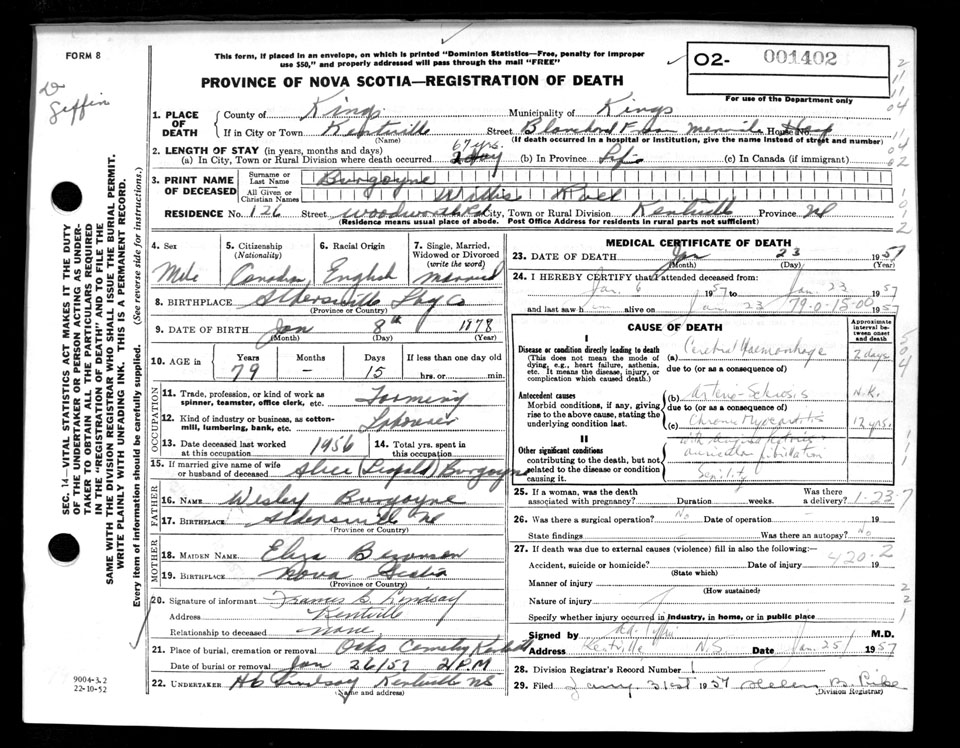 FORM 8
This form, if placed in an envelope, on which is printed "Dominion Statistics—Free, penalty for improper
use $50," and properly addressed will pass through the mail "FREE"
02- 001402
PROVINCE OF NOVA SCOTIA—REGISTRATION OF DEATH
For use of the Department only
Dr
Giffin
SEC. 14—VITAL STATISTICS ACT MAKES IT THE DUTY
OF THE UNDERTAKER OR PERSON ACTING AS UNDER-
TAKER TO OBTAIN ALL THE PARTICULARS REQUIRED
IN THE "REGISTRATION OF DEATH" AND TO FILE THE
SAME WITH THE DIVISION REGISTRAR WHO SHALL ISSUE THE BURIAL PERMIT.
WRITE PLAINLY WITH UNFADING INK. THIS IS A PERMANENT RECORD.
Every item of information should be carefully supplied. (See reverse side for instructions.)
1. PLACE OF DEATH
County of Kings Municipality of Kings
If in City or Town Kentville Street Blanchard Fraser House No. Hosp
(Name) (If death occurred in a hospital or institution, give the name instead of street and number)
2. LENGTH OF STAY (in years, months and days)
67 yrs.
(a) In City, Town or Rural Division where death occurred 1 day (b) In Province Life (c) In Canada (if immigrant)
3. PRINT NAME OF DECEASED
Surname or Last Name Burgoyne
All Given or Christian Names
RESIDENCE No. 126 Street City, Town or Rural Division Kentville Province NS
(Residence means usual place of abode. Post Office Address for residents in rural parts not sufficient)
4. Sex Male
5. Citizenship (Nationality) Canadian
6. Racial Origin English
7. Single, Married, Widowed or Divorced (write the word) Married
8. BIRTHPLACE Aldersville
(Province or Country)
9. DATE OF BIRTH Jan 8th 1878
(Month) (Day) (Year)
10. AGE in Years 79 Months – Days 15 If less than one day old hrs. or min.
OCCUPATION
11. Trade, profession, or kind of work as spinner, teamster, office clerk, etc. Farming
12. Kind of industry or business, as cotton-mill, lumbering, bank, etc. Labourer
13. Date deceased last worked at this occupation 1956
14. Total yrs. spent in this occupation
15. If married give name of wife or husband of deceased Alice (Leopold) Burgoyne
FATHER
16. NAME Wesley Burgoyne
17. BIRTHPLACE Aldersville NS
(Province or Country)
MOTHER
18. MAIDEN NAME Eliza
19. BIRTHPLACE Nova Scotia
(Province or Country)
20. Signature of informant Frances C. Lindsay
Address Kentville
Relationship to deceased none
21. Place of burial, cremation or removal Oaks Cemetery
Date of burial or removal Jan 26/57 2 P.M
22. UNDERTAKER H C Lindsay Kentville NS
(Name and address)
9004-3.2
22-10-52
MEDICAL CERTIFICATE OF DEATH
23. DATE OF DEATH Jan 23 1957
(Month) (Day) (Year)
24. I HEREBY CERTIFY that I attended deceased from:
Jan. 6 1957 to Jan 23 1957
and last saw him alive on Jan 23 1957
79-0-15-00
CAUSE OF DEATH
Approximate interval between onset and death
I
Disease or condition directly leading to death (a) Cerebral Haemorrhage 2 days
(This does not mean the mode of dying, e.g., heart failure, asthenia, etc. It means the disease, injury, or complication which caused death.)
due to (or as a consequence of)
Antecedent causes (b) Arterio-Sclerosis N.K.
Morbid conditions, if any, giving rise to the above cause, stating the underlying condition last.
due to (or as a consequence of)
(c) Chronic Myocarditis 12 yrs.
II
with Angina Pectoris &
auricular fibrillation
Senility
Other significant conditions contributing to the death, but not related to the disease or condition causing it.
25. If a woman, was the death associated with pregnancy? Duration weeks. Was there a delivery?
1-23-7
26. Was there a surgical operation? No Date of operation – 19
State findings Was there an autopsy? No
27. If death was due to external causes (violence) fill in also the following:—
420-2
Accident, suicide or homicide? Date of injury 19
(State which)
Manner of injury
(How sustained)
Nature of injury
Specify whether injury occurred in industry, in home, or in public place
Signed by Giffin M.D.
Address Kentville N.S. Date Jan. 25 1957
28. Division Registrar's Record Number 1
29. Filed Jany 31st 1957 Helen B. Pike
Division Registrar)